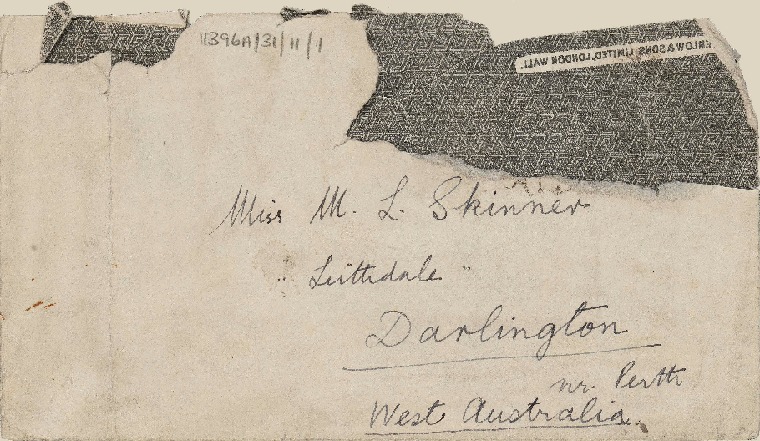 11396A/31/11/1
LOW & SONS, LIMITED, LONDON WALL.
Miss M. L. Skinner
"Leithdale"
Darlington
nr. Perth
West Australia.